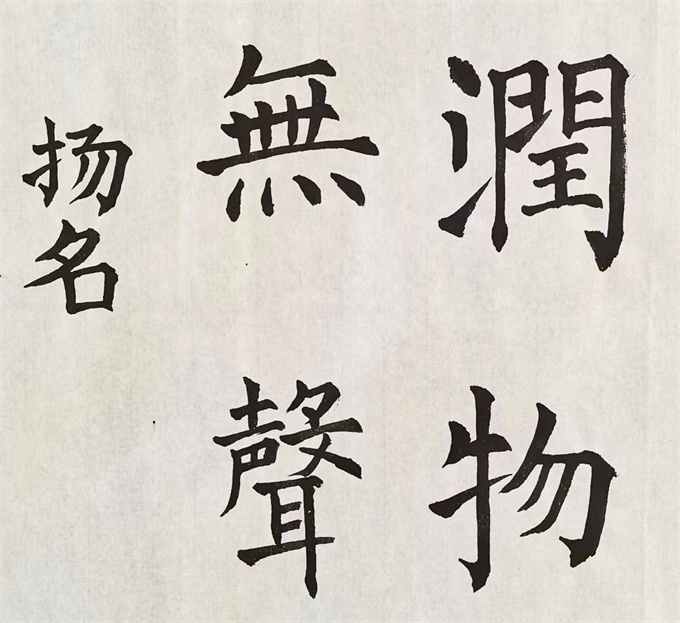 潤物
無聲
扬名